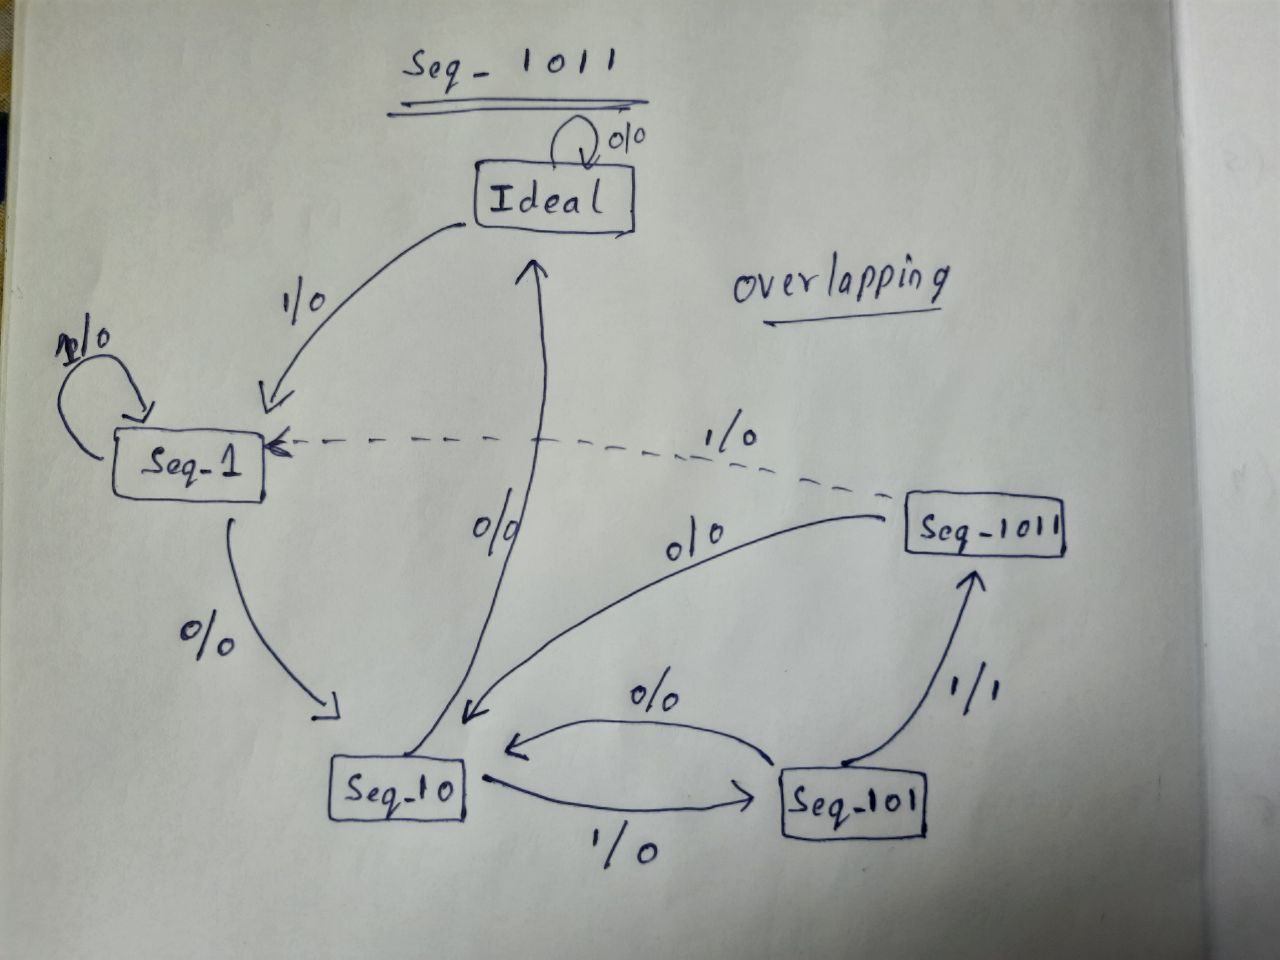 Seq_ 1011
0/0
Ideal
1/0
overlapping
1/0
1/0
Seq_1
0/0
0/0
Seq_1011
0/0
0/0
1/1
Seq_10
Seq_101
1/0